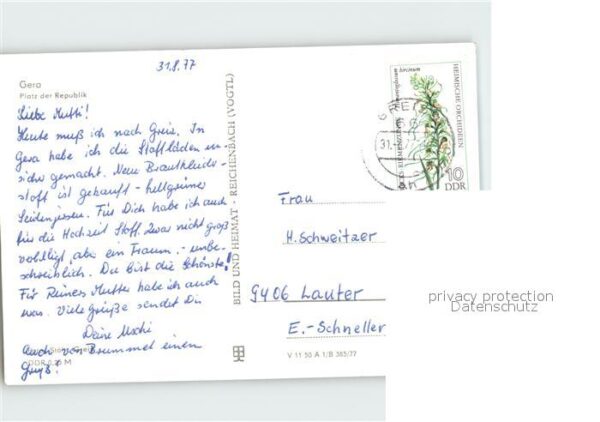 31.8.77
Gera
Platz der Republik
Liebe Mutti!
Heute muß ich nach Greiz. In
Gera habe ich die Stoffläden un-
sicher gemacht. Neuer Brautkleid-
stoff ist gekauft - hellgrüner
Für Dich habe ich auch
für die Hochzeit Stoff. Zwar nicht groß
aber ein Traum, - unbe-
schreiblich. Du bist die Schönste!
Für Reiners Mutter habe ich auch
was. Viele Grüße sendet Dir
Deine Uschi
Auch von Brummel einen
Gruß!
DDR 0,25 M
BILD UND HEIMAT - REICHENBACH (VOGTL)
V 11 50 A 1/B 365/77
HEIMISCHE ORCHIDEEN
10
DDR
GREIZ
31.
Frau
H. Schweitzer
9406 Lauter
E.-Schneller
privacy protection
Datenschutz